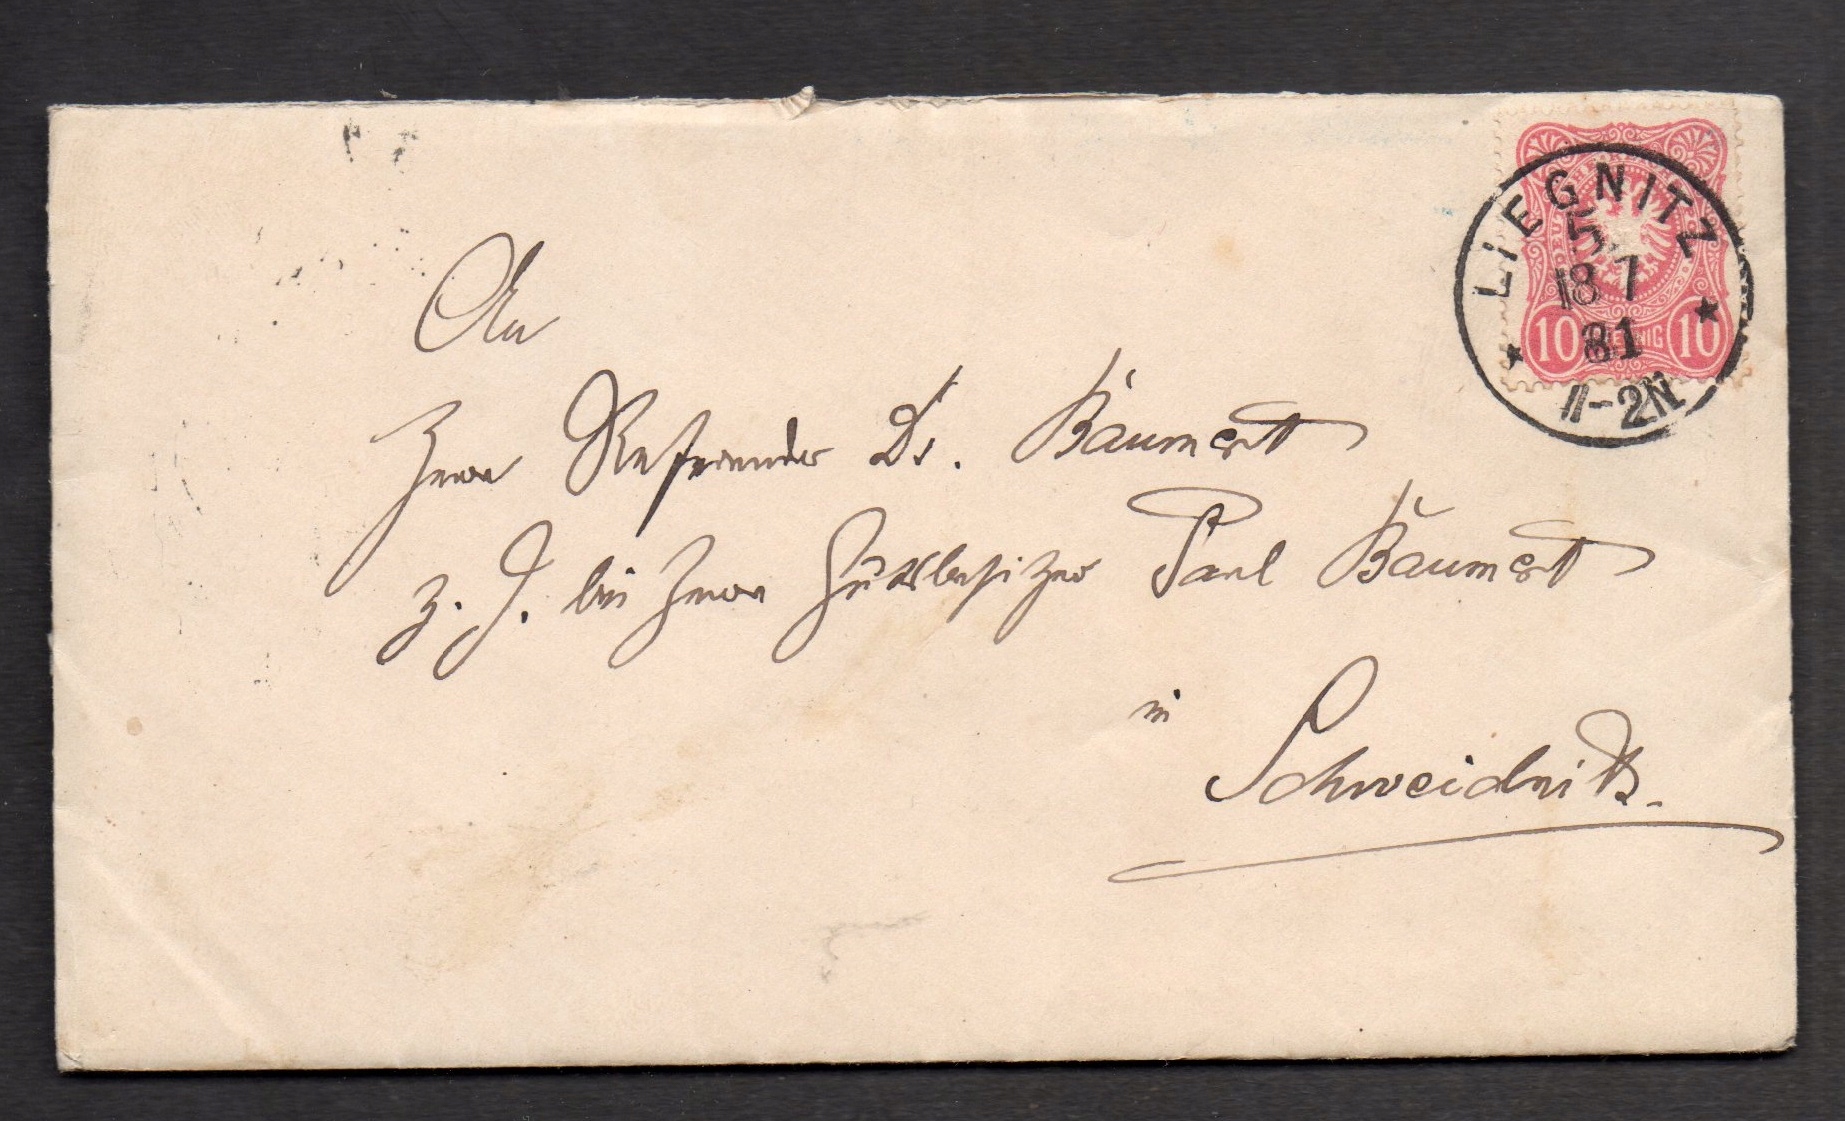 LIEGNITZ
5.
18 7
81
11-2N
10 PFENNIG 10
An
Herrn Referendar Dr. Baumert
z. Z. bei Herrn Gutsbesitzer Paul Baumert
in
Schweidnitz.